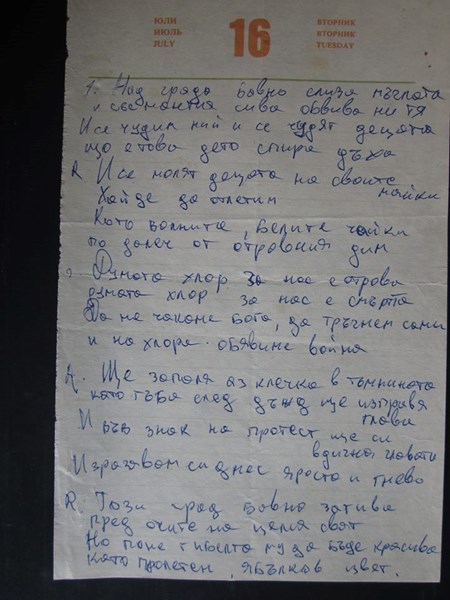 ЮЛИ
ИЮЛЬ
JULY
16
ВТОРНИК
ВТОРНИК
TUESDAY
1. Над града бавно слиза мъглата
и със мантия сива обвива ни тя
И се чудим ний и се чудят децата
що е това дето спира дъха
R. И се молят децата на своите майки
Хайде да отлетим
Като волните, белите чайки
по далеч от отровния дим
Думата хлор за нас е отрова
думата хлор за нас е смъртта
Да не чакаме Бога, да тръгнем сами
и на хлора обявиме война
R. Ще запаля аз клечка в тъмнината
като гъба след дъжд ще изправя глави
И във знак на протест ще си вдигна главата
Изразявам си днес яростта и гнева
R. Този град бавно загива
пред очите на целия свят
Но поне гибелта му да бъде красива
като пролетен ябълков цвят.